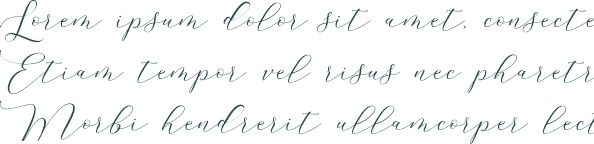 Lorem ipsum dolor sit amet, consecte
Etiam tempor vel risus nec pharetr
Morbi hendrerit ullamcorper lect